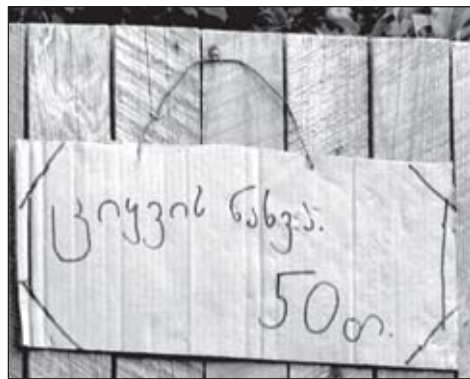 ციყვის ნახვა.
50თ.